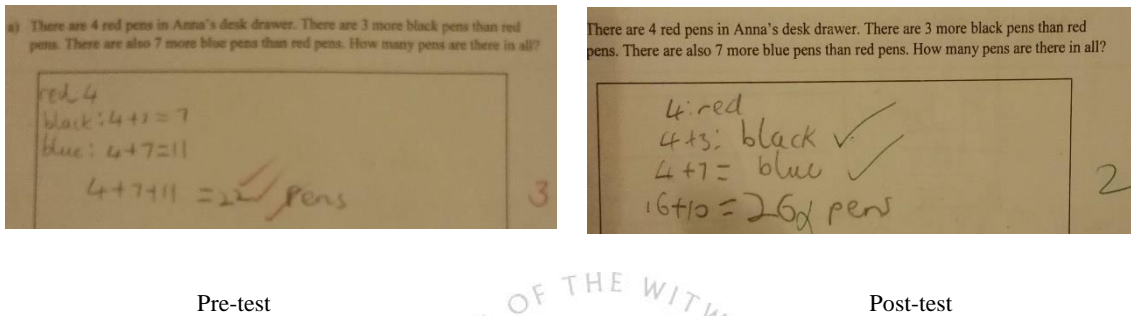 a) There are 4 red pens in Anna's desk drawer. There are 3 more black pens than red
pens. There are also 7 more blue pens than red pens. How many pens are there in all?
red 4
black: 4+3=7
blue: 4+7=11
4+7+11 =22 pens
3
There are 4 red pens in Anna's desk drawer. There are 3 more black pens than red
pens. There are also 7 more blue pens than red pens. How many pens are there in all?
4: red
4+3: black
4+7= blue
16+10=26 pens
2
Pre-test
Post-test
OF THE WITW